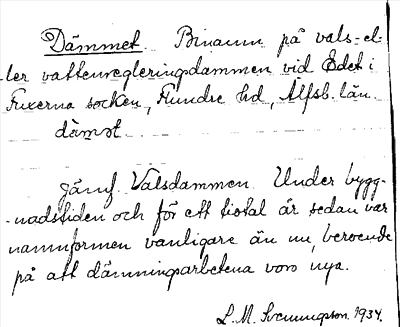 Dämmet. Binamn på vals-el-
ler vattenregleringsdammen vid Edet i
Fuxerna socken, Flundre hd, Älfsb. län.
dämət
jämf. Valsdammen. Under bygg-
-nadstiden och för ett tiotal år sedan var
namnformen vanligare än nu, beroende
på att dämningsarbetena voro nya.
L. M. Svenungsson. 1934.